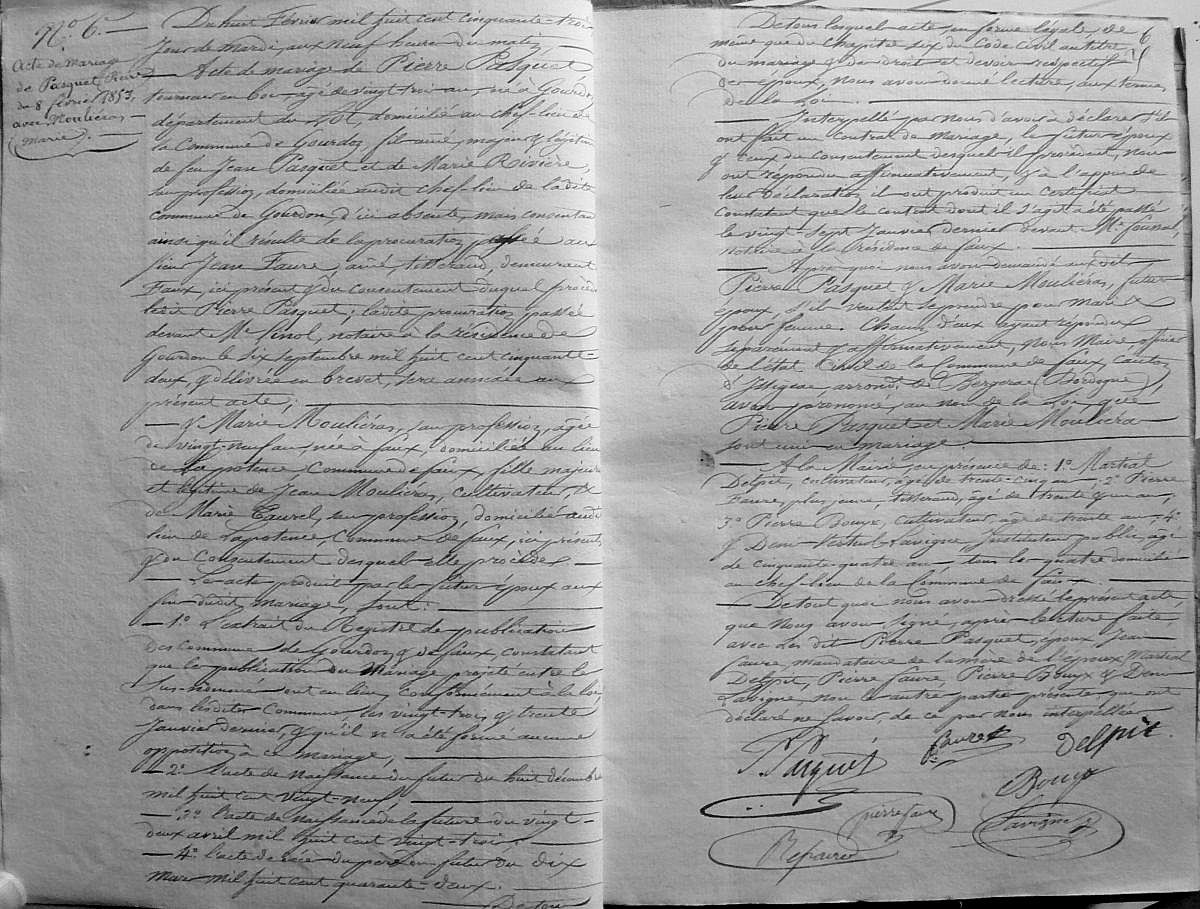 N.º 6.
Acte de mariage
de Pasquet Pierre
du 8 février 1853,
avec Mouliéras
Marie.
Du huit Février mil huit cent cinquante-trois
jour de mardi, aux neuf heures du matin,
Acte de mariage de Pierre Pasquet
tourneur en bois agé de vingt trois ans, né à Gourdon
département du Lot, domicilié au chef-lieu de
la Commune de Gourdon, fils ainé, majeur & légitime
de feu Jean Pasquet et de Marie Rivière,
sans profession, domiciliée audit chef-lieu de ladite
commune de Gourdon, d'ici absente, mais consentante
ainsi qu'il résulte de la procuration passée au
sieur Jean Faure, ainé, tisserand, demeurant
Faux, ici présent & du consentement duquel procède
ledit Pierre Pasquet; ladite procuration passée
devant Me Linol, notaire à la résidence de
Gourdon le six septembre mil huit cent cinquante-
deux, & délivrée en brevet, sera annexée au
présent acte;
& Marie Mouliéras, sans profession, agée
de vingt-neuf ans, née à Faux, domiciliée au lieu
de Lapotence Commune de faux, fille majeure
et légitime de Jean Mouliéras, cultivateur, &
de Marie Taurel, sans profession, domiciliés audit
lieu de Lapotence Commune de faux, ici présents
& du Consentement desquels elle procède.
Les actes produits par les futurs époux aux
fins dudit mariage, sont:
1.º L'extrait du Registre de publications
des Communes de Gourdon & de faux, constatant
que les publications du Mariage projeté entre les
susnommés ont eu lieu, conformément à la loi
dans lesdites Communes, les vingt-trois & trente
Janvier dernier, & qu'il n'a été formé aucune
opposition à ce mariage,
2.º L'acte de Naissance du futur du huit décembre
mil huit cent vingt-neuf,
3.º L'acte de naissance de la future du vingt-
deux avril mil huit cent vingt-trois
4.º L'acte de décès du père du futur du dix
Mars mil huit cent quarante-deux.
De tous
De tous lesquels actes, en forme légale, de
même que du Chapitre six du Code Civil au titre
du mariage & des droits et devoirs respectifs
des époux, nous avons donné lecture, aux termes
de la Loi.
Interpellés par nous d'avoir à déclarer s'ils
ont fait un contrat de mariage, les futurs époux
& ceux du consentement desquels ils procèdent, nous
ont répondu affirmativement, & à l'appui de
leur déclaration ils ont produit un certificat
constatant que le contrat dont il s'agit a été passé
le vingt-sept Janvier dernier devant Me
notaire à la résidence de faux.
Après quoi nous avons demandé aux dits
Pierre Pasquet & Marie Mouliéras, futurs
époux, s'ils veulent se prendre pour mari &
pour femme. Chacun d'eux ayant répondu
séparément & affirmativement, Nous Maire, officier
de l'état Civil de la Commune de faux, canton
d'Issigeac, arront de Bergerac (Dordogne)
avons prononcé, au nom de la Loi, que
Pierre Pasquet et Marie Mouliéras
sont unis en mariage.
A la Mairie, en présence de: 1º Martial
Delpit, cultivateur, agé de trente-cinq ans; 2º Pierre
Faure, plus jeune, tisserand, agé de trente & un ans,
3º Pierre Bouyx, cultivateur, agé de trente ans, 4º
& Denis Lavigne, Instituteur public, agé
de cinquante-quatre ans, tous les quatre domiciliés
au chef-lieu de la Commune de faux.
De tout quoi nous avons dressé le présent acte,
que Nous avons signé, après lecture faite,
avec les dits Pierre Pasquet, époux, Jean
faure, mandataire de la mère de l'époux, Martial
Delpit, Pierre faure, Pierre Bouyx & Denis
Lavigne, non les autres parties présentes qui ont
déclaré ne savoir, de ce par nous interpellées
P. Pasquet
faure
Delpit
Bouyx
Pierre faure
Lavigne